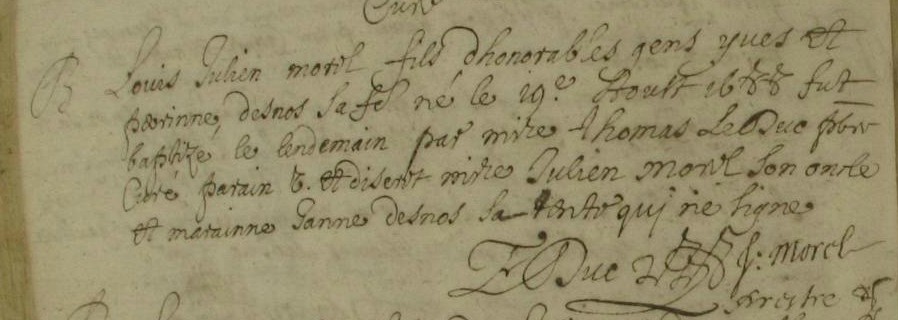 Curé
B Louis Julien morel fils dhonorables gens yves et
perinne desnos sa fe né le 19e Aoust 1688 fut
baptizé le lendemain par mire Thomas Le Duc pbre
Curé parain v. et discret mire Julien morel son oncle
et marainne Janne desnos sa tante qui ne signe
T Le Duc J: Morel
prestre